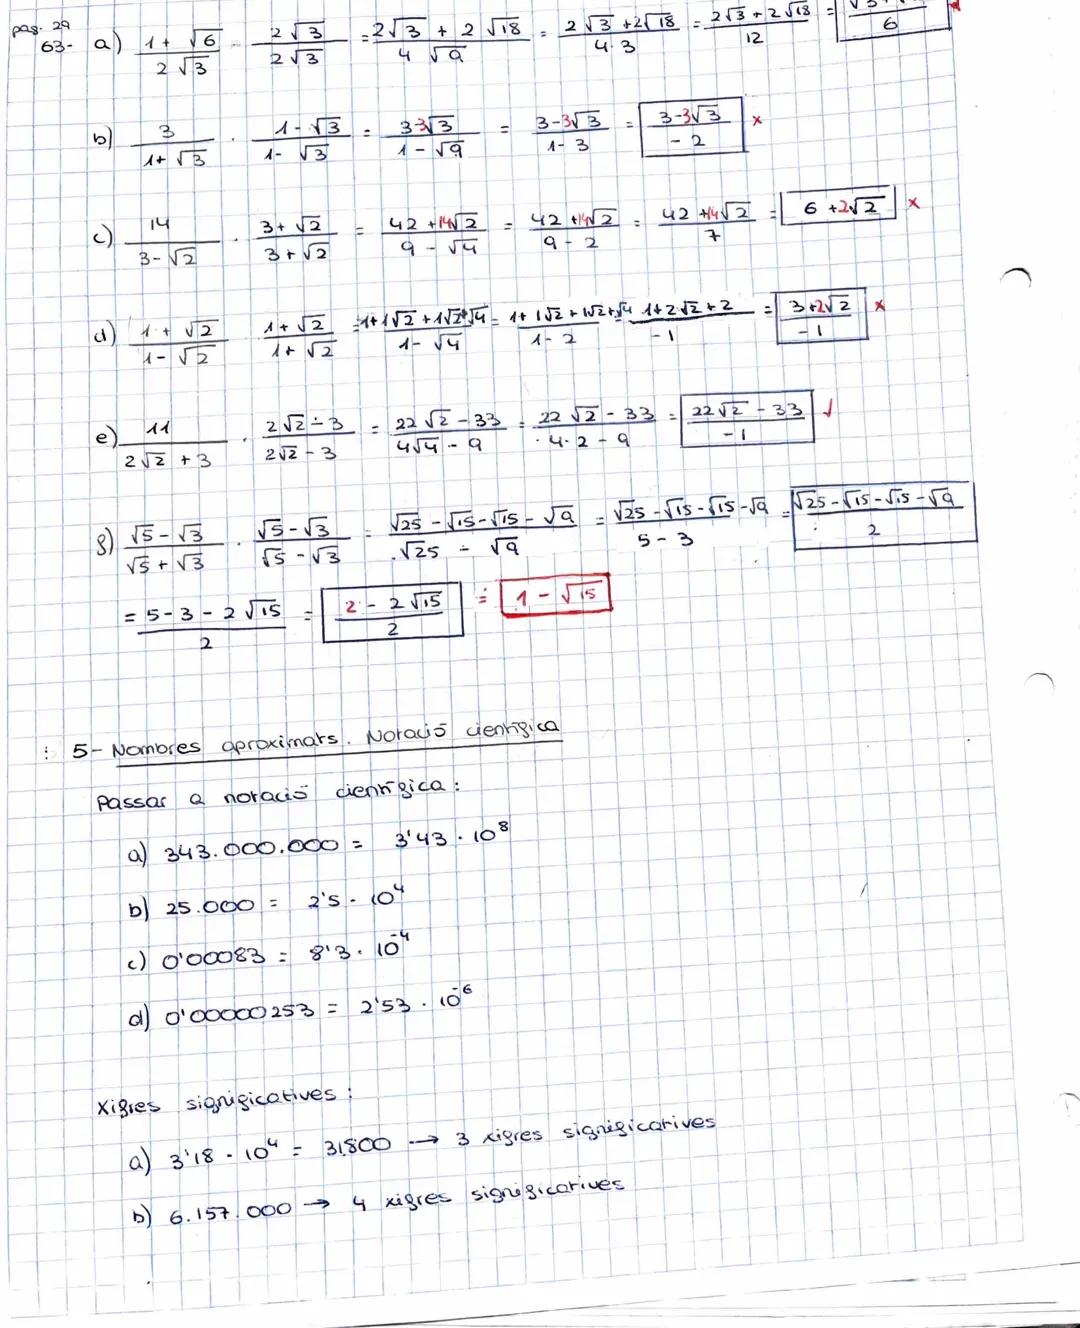 pag. 29
63- a) (1 + √6)/(2√3) · (2√3)/(2√3) = (2√3 + 2√18)/(4√9) = (2√3 + 2√18)/(4·3) = (2√3 + 2√18)/12 =
b) 3/(1+√3) · (1-√3)/(1-√3) = (3-3√3)/(1-√9) = (3-3√3)/(1-3) = (3-3√3)/(-2) x
c) 14/(3-√2) · (3+√2)/(3+√2) = (42+14√2)/(9-√4) = (42+14√2)/(9-2) = (42+14√2)/7 = 6+2√2 x
d) (1+√2)/(1-√2) (1+√2)/(1+√2) = (1+1√2+1√2+√4)/(1-√4) = (1+1√2+1√2+√4)/(1-2) = (1+2√2+2)/(-1) = (3+2√2)/(-1) x
e) 11/(2√2+3) · (2√2-3)/(2√2-3) = (22√2-33)/(4√4-9) = (22√2-33)/(4·2-9) = (22√2-33)/(-1) √
g) (√5-√3)/(√5+√3) · (√5-√3)/(√5-√3) = (√25-√15-√15-√9)/(√25-√9) = (√25-√15-√15-√9)/(5-3) = (√25-√15-√15-√9)/2
= (5-3-2√15)/2 = (2-2√15)/2 = 1-√15
5- Nombres aproximats. Notació científica
Passar a notació científica:
a) 343.000.000 = 3'43 · 10⁸
b) 25.000 = 2'5 · 10⁴
c) 0'00083 = 8'3 · 10⁻⁴
d) 0'00000253 = 2'53 · 10⁻⁶
Xifres significatives:
a) 3'18 · 10⁴ = 31.800 → 3 xifres significatives
b) 6.157.000 → 4 xifres significatives